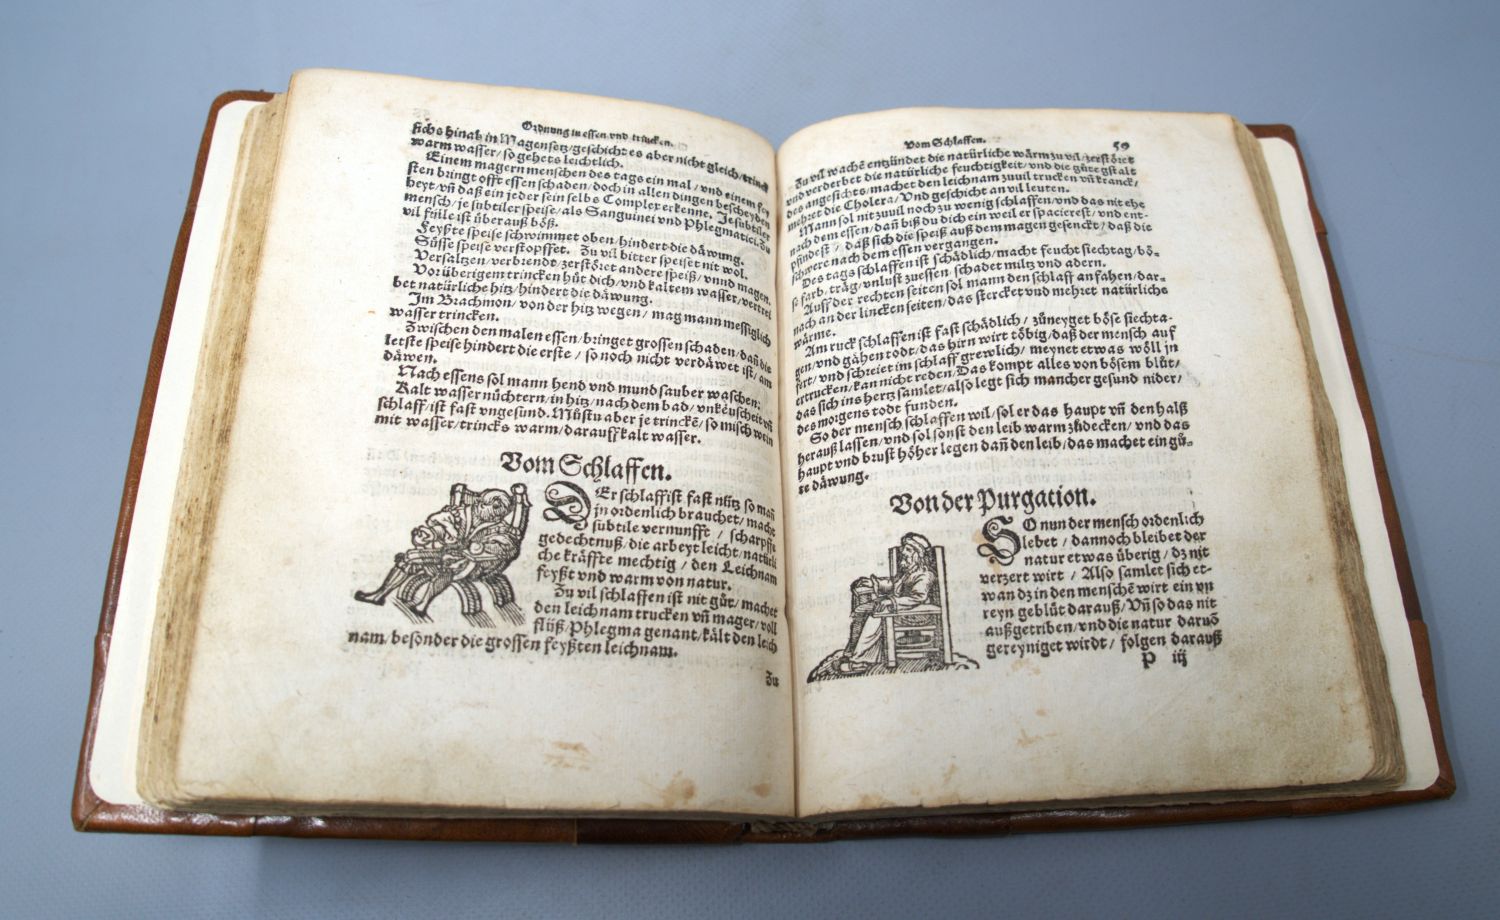 Ordnung in essen vnd trincken.
sichs hinab in Magen setz/geschicht es aber nicht gleich/trinck
warm wasser/so gehets leichtlich.
Einem magern menschen des tags ein mal/vnd einem fey
sten bringt offt essen schaden/doch in allen dingen bescheyden
heyt/vñ daß ein jeder sein selbs Complex erkenne. Je subtiler
mensch/je subtiler speise/als Sanguinei vnd Phlegmatici. Zu
vil fülle ist überauß böß.
Feyßte speise schwimmet oben/hindert die däwung.
Süsse speise verstopffet. Zu vil bitter speiset nit wol.
Versaltzen/verbrendt/zerstöret andere speiß/vnnd magen.
Vor überigem trincken hüt dich/vnd kaltem wasser/vertrei
bet natürliche hitz/hindert die däwung.
Im Brachmon/von der hitz wegen/mag mann messiglich
wasser trincken.
Zwischen den malen essen/bringet grossen schaden/dañ die
letste speise hindert die erste/so noch nicht verdäwet ist/am
däwen.
Nach essens sol mann hend vnd mund sauber waschen:
Kalt wasser nüchtern/in hitz/nach dem bad/vnkeuscheit vñ
schlaff/ist fast vngesund. Müstu aber je trinckẽ/so misch wein
mit wasser/trincks warm/darauff kalt wasser.
Vom Schlaffen.
DEr schlaff ist fast nütz so mañ
jn ordenlich brauchet/macht
subtile vernunfft/scharpffe
gedechtnuß/die arbeyt leicht/natürli
che kräffte mechtig/den Leichnam
feyßt vnd warm von natur.
Zu vil schlaffen ist nit gůt/machet
den leichnam trucken vñ mager/voll
flüß/Phlegma genant/kält den leich
nam/besonder die grossen feyßten leichnam.
Zu
Vom Schlaffen. 59
Zu vil wachẽ entzündet die natürliche wärm zu vil/zerstöret
vnd verderbet die natürliche feuchtigkeit/vnd die güte gstalt
des angesichts/machet den leichnam zuuil trucken vñ kranck/
mehret die Cholera/Vnd geschicht an vil leuten.
Mann sol nit zuuil noch zu wenig schlaffen/vnd das nit ehe
nach dem essen/dañ biß du dich ein weil er spacierest/vnd ent-
pfindest/daß sich die speiß auß dem magen gesenckt/daß die
schwere nach dem essen vergangen.
Des tags schlaffen ist schädlich/macht feucht siechtag/bö-
se farb, träg/vnlust zuessen/schadet miltz vnd adern.
Auff der rechten seiten sol mann den schlaff anfahen/dar-
nach an der lincken seiten/das stercket vnd mehret natürliche
wärme.
Am ruck schlaffen ist fast schädlich/zůneyget böse siechta-
gen/vnd gähen todt/das hirn wirt töbig/daß der mensch auf
fert/vnd schreiet im schlaff grewlich/meynet etwas wöll jn
ertrucken/kan nicht reden/Das kompt alles von bösem blůt/
das sich ins hertz samlet/also legt sich mancher gesund nider/
des morgens todt funden.
So der mensch schlaffen wil/sol er das haupt vñ den halß
herauß lassen/vnd sol sonst den leib warm zůdecken/vnd das
haupt vnd brust höher legen dañ den leib/das machet ein gů-
te däwung.
Von der Purgation.
SO nun der mensch ordenlich
lebet/dannoch bleibet der
natur etwas überig/dz nit
verzert wirt/Also samlet sich et-
wan dz in den menschẽ wirt ein vn
reyn geblüt darauß/Vñ so das nit
außgetriben/vnd die natur daruõ
gereyniget wirdt/folgen darauß
P iij